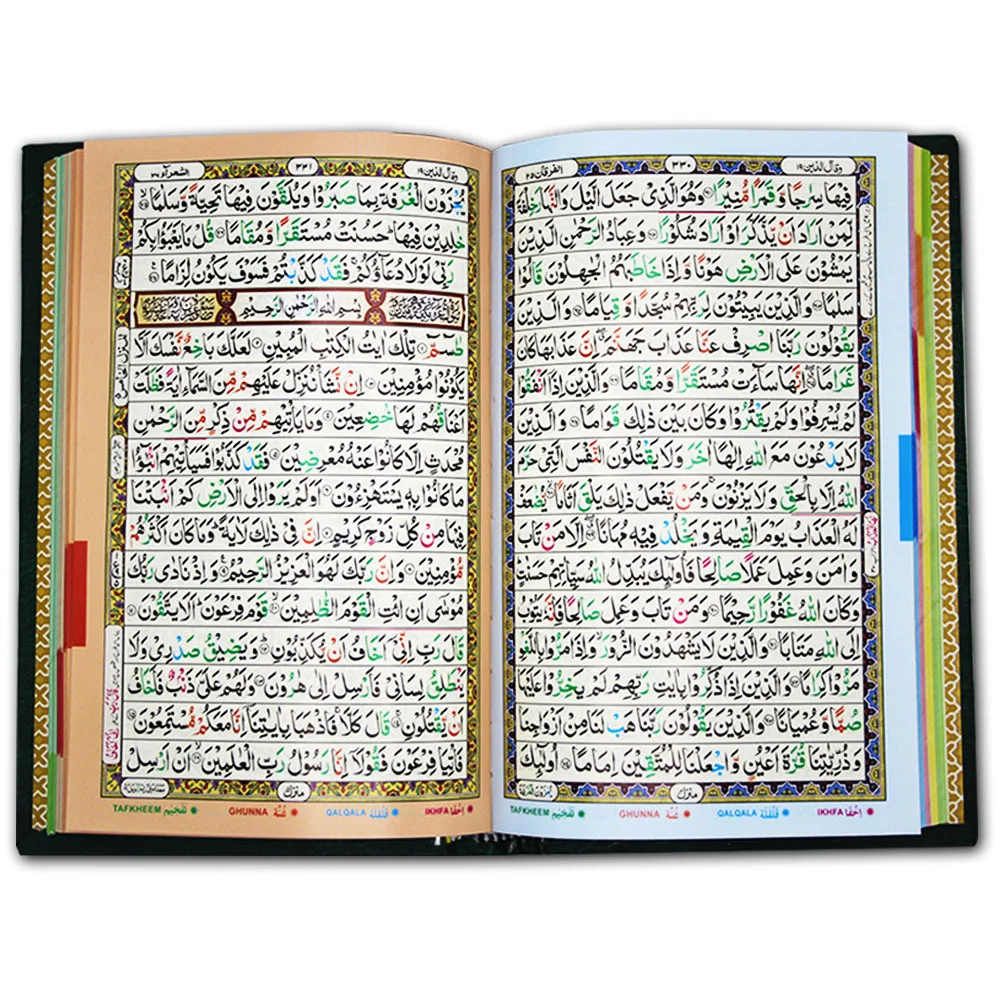 وقال الذين ١٩
٣٣٠
الفرقان ٢٥
فِيْهَا سِرٰجًا وَّقَمَرًا مُّنِيْرًا ۝ وَهُوَ الَّذِيْ جَعَلَ الَّيْلَ وَالنَّهَارَ خِلْفَةً
لِّمَنْ اَرَادَ اَنْ يَّذَّكَّرَ اَوْ اَرَادَ شُكُوْرًا ۝ وَعِبَادُ الرَّحْمٰنِ الَّذِيْنَ
يَمْشُوْنَ عَلَى الْاَرْضِ هَوْنًا وَّاِذَا خَاطَبَهُمُ الْجٰهِلُوْنَ قَالُوْا
سَلٰمًا ۝ وَالَّذِيْنَ يَبِيْتُوْنَ لِرَبِّهِمْ سُجَّدًا وَّقِيَامًا ۝ وَالَّذِيْنَ
يَقُوْلُوْنَ رَبَّنَا اصْرِفْ عَنَّا عَذَابَ جَهَنَّمَ اِنَّ عَذَابَهَا كَانَ
غَرَامًا ۝ اِنَّهَا سَآءَتْ مُسْتَقَرًّا وَّمُقَامًا ۝ وَالَّذِيْنَ اِذَآ اَنْفَقُوْا
لَمْ يُسْرِفُوْا وَلَمْ يَقْتُرُوْا وَكَانَ بَيْنَ ذٰلِكَ قَوَامًا ۝ وَالَّذِيْنَ
لَا يَدْعُوْنَ مَعَ اللّٰهِ اِلٰهًا اٰخَرَ وَلَا يَقْتُلُوْنَ النَّفْسَ الَّتِيْ حَرَّمَ
اللّٰهُ اِلَّا بِالْحَقِّ وَلَا يَزْنُوْنَ ۚ وَمَنْ يَّفْعَلْ ذٰلِكَ يَلْقَ اَثَامًا ۝ يُّضٰعَفْ
لَهُ الْعَذَابُ يَوْمَ الْقِيٰمَةِ وَيَخْلُدْ فِيْهٖ مُهَانًا ۝ اِلَّا مَنْ تَابَ
وَاٰمَنَ وَعَمِلَ عَمَلًا صَالِحًا فَاُولٰٓئِكَ يُبَدِّلُ اللّٰهُ سَيِّاٰتِهِمْ حَسَنٰتٍ
وَكَانَ اللّٰهُ غَفُوْرًا رَّحِيْمًا ۝ وَمَنْ تَابَ وَعَمِلَ صَالِحًا فَاِنَّهٗ يَتُوْبُ
اِلَى اللّٰهِ مَتَابًا ۝ وَالَّذِيْنَ لَا يَشْهَدُوْنَ الزُّوْرَ ۙ وَاِذَا مَرُّوْا بِاللَّغْوِ
مَرُّوْا كِرَامًا ۝ وَالَّذِيْنَ اِذَا ذُكِّرُوْا بِاٰيٰتِ رَبِّهِمْ لَمْ يَخِرُّوْا عَلَيْهَا
صُمًّا وَّعُمْيَانًا ۝ وَالَّذِيْنَ يَقُوْلُوْنَ رَبَّنَا هَبْ لَنَا مِنْ اَزْوَاجِنَا
وَذُرِّيّٰتِنَا قُرَّةَ اَعْيُنٍ وَّاجْعَلْنَا لِلْمُتَّقِيْنَ اِمَامًا ۝ اُولٰٓئِكَ
منزل
IKHFA اِخْفَا QALQALA قَلْقَلَة GHUNNA غُنَّه TAFKHEEM تَفْخِيْم
وقال الذين ١٩
٣٣١
الشعرآء ٢٦
يُجْزَوْنَ الْغُرْفَةَ بِمَا صَبَرُوْا وَيُلَقَّوْنَ فِيْهَا تَحِيَّةً وَّسَلٰمًا ۝
خٰلِدِيْنَ فِيْهَا حَسُنَتْ مُسْتَقَرًّا وَّمُقَامًا ۝ قُلْ مَا يَعْبَؤُا بِكُمْ
رَبِّيْ لَوْلَا دُعَآؤُكُمْ ۚ فَقَدْ كَذَّبْتُمْ فَسَوْفَ يَكُوْنُ لِزَامًا ۝
بِسْمِ اللّٰهِ الرَّحْمٰنِ الرَّحِيْمِ
طٰسٓمّٓ ۝ تِلْكَ اٰيٰتُ الْكِتٰبِ الْمُبِيْنِ ۝ لَعَلَّكَ بَاخِعٌ نَّفْسَكَ اَلَّا
يَكُوْنُوْا مُؤْمِنِيْنَ ۝ اِنْ نَّشَاْ نُنَزِّلْ عَلَيْهِمْ مِّنَ السَّمَآءِ اٰيَةً فَظَلَّتْ
اَعْنَاقُهُمْ لَهَا خٰضِعِيْنَ ۝ وَمَا يَاْتِيْهِمْ مِّنْ ذِكْرٍ مِّنَ الرَّحْمٰنِ
مُحْدَثٍ اِلَّا كَانُوْا عَنْهُ مُعْرِضِيْنَ ۝ فَقَدْ كَذَّبُوْا فَسَيَاْتِيْهِمْ اَنْۢبٰٓؤُا
مَا كَانُوْا بِهٖ يَسْتَهْزِءُوْنَ ۝ اَوَلَمْ يَرَوْا اِلَى الْاَرْضِ كَمْ اَنْۢبَتْنَا
فِيْهَا مِنْ كُلِّ زَوْجٍ كَرِيْمٍ ۝ اِنَّ فِيْ ذٰلِكَ لَاٰيَةً ۗ وَمَا كَانَ اَكْثَرُهُمْ
مُّؤْمِنِيْنَ ۝ وَاِنَّ رَبَّكَ لَهُوَ الْعَزِيْزُ الرَّحِيْمُ ۝ وَاِذْ نَادٰى رَبُّكَ
مُوْسٰٓى اَنِ ائْتِ الْقَوْمَ الظّٰلِمِيْنَ ۝ قَوْمَ فِرْعَوْنَ ۗ اَلَا يَتَّقُوْنَ ۝
قَالَ رَبِّ اِنِّيْٓ اَخَافُ اَنْ يُّكَذِّبُوْنِ ۝ وَيَضِيْقُ صَدْرِيْ وَلَا
يَنْطَلِقُ لِسَانِيْ فَاَرْسِلْ اِلٰى هٰرُوْنَ ۝ وَلَهُمْ عَلَيَّ ذَنْۢبٌ فَاَخَافُ
اَنْ يَّقْتُلُوْنِ ۝ قَالَ كَلَّا ۚ فَاذْهَبَا بِاٰيٰتِنَآ اِنَّا مَعَكُمْ مُّسْتَمِعُوْنَ ۝
فَاْتِيَا فِرْعَوْنَ فَقُوْلَآ اِنَّا رَسُوْلُ رَبِّ الْعٰلَمِيْنَ ۝ اَنْ اَرْسِلْ
منزل
IKHFA اِخْفَا QALQALA قَلْقَلَة GHUNNA غُنَّه TAFKHEEM تَفْخِيْم